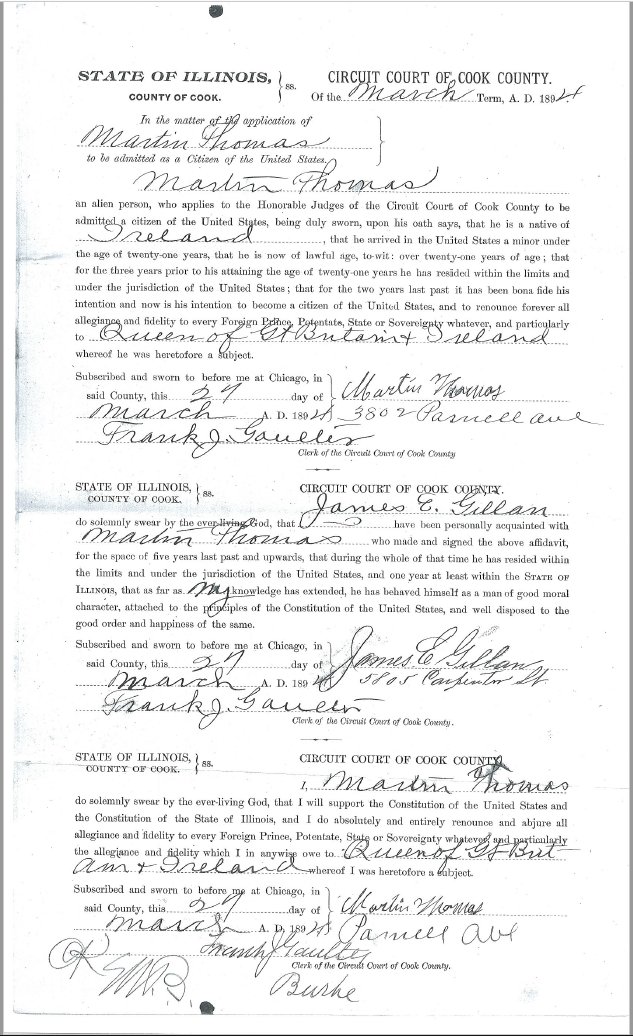 STATE OF ILLINOIS, } ss. CIRCUIT COURT OF COOK COUNTY.
COUNTY OF COOK. Of the March Term, A. D. 1894
In the matter of the application of
Martin Thomas
to be admitted as a Citizen of the United States.
Martin Thomas
an alien person, who applies to the Honorable Judges of the Circuit Court of Cook County to be
admitted a citizen of the United States, being duly sworn, upon his oath says, that he is a native of
Ireland, that he arrived in the United States a minor under
the age of twenty-one years, that he is now of lawful age, to-wit: over twenty-one years of age; that
for the three years prior to his attaining the age of twenty-one years he has resided within the limits and
under the jurisdiction of the United States; that for the two years last past it has been bona fide his
intention and now is his intention to become a citizen of the United States, and to renounce forever all
allegiance and fidelity to every Foreign Prince, Potentate, State or Sovereignty whatever, and particularly
to Queen of Gt Britain & Ireland
whereof he was heretofore a subject.
Subscribed and sworn to before me at Chicago, in
said County, this 27 day of } Martin Thomas
March A. D. 1894 3802 Parnell Ave
Frank J. Gaulter
Clerk of the Circuit Court of Cook County
STATE OF ILLINOIS, } ss. CIRCUIT COURT OF COOK COUNTY.
COUNTY OF COOK. James E. Gillan
do solemnly swear by the ever-living God, that I have been personally acquainted with
Martin Thomas who made and signed the above affidavit,
for the space of five years last past and upwards, that during the whole of that time he has resided within
the limits and under the jurisdiction of the United States, and one year at least within the STATE OF
ILLINOIS, that as far as my knowledge has extended, he has behaved himself as a man of good moral
character, attached to the principles of the Constitution of the United States, and well disposed to the
good order and happiness of the same.
Subscribed and sworn to before me at Chicago, in
said County, this 27 day of } James E Gillan
March A. D. 1894 5805 Carpenter St
Frank J. Gaulter
Clerk of the Circuit Court of Cook County.
STATE OF ILLINOIS, } ss. CIRCUIT COURT OF COOK COUNTY
COUNTY OF COOK. I, Martin Thomas
do solemnly swear by the ever-living God, that I will support the Constitution of the United States and
the Constitution of the State of Illinois, and I do absolutely and entirely renounce and abjure all
allegiance and fidelity to every Foreign Prince, Potentate, State or Sovereignty whatever, and particularly
the allegiance and fidelity which I in anywise owe to Queen of Gt Brit
ain & Ireland whereof I was heretofore a subject.
Subscribed and sworn to before me at Chicago, in
said County, this 27 day of } Martin Thomas
March A. D. 1894 Parnell Ave
Frank J Gaulter
Clerk of the Circuit Court of Cook County.
OK
Burke